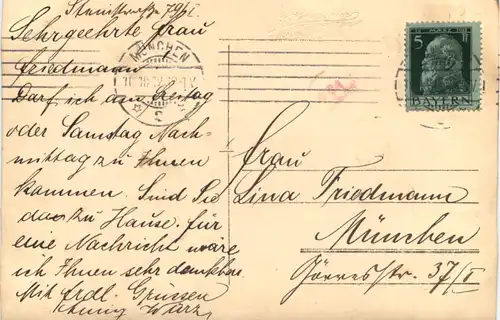 Steinstrasse 79/I.
Sehrgeehrte Frau
Friedmann
Darf ich am Freitag
oder Samstag Nach-
mittag zu Ihnen
kommen. Sind Sie
da zu Hause. für
eine Nachricht wäre
ich Ihnen sehr dankbar
Mit frdl. Grüssen
MÜNCHEN
12. MÄRZ 1911
5 Pf
BAYERN
Frau
Lina Friedmann
München
Görresstr. 37/I